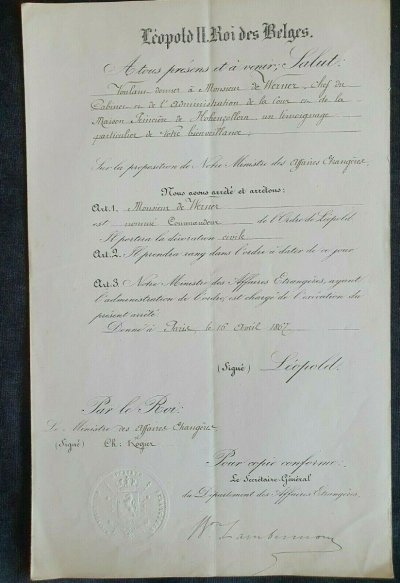 Léopold II. Roi des Belges.
A tous présens et à venir, Salut:
Voulant donner à Monsieur de Werner, Chef du
Cabinet et de l'Administration de la Cour et de la
Maison Princière de Hohenzollern, un témoignage
particulier de notre bienveillance,
Sur la proposition de Notre Ministre des Affaires Etrangères,
Nous avons arrêté et arrêtons:
Art. 1. Monsieur de Werner
est nommé Commandeur de l'Ordre de Léopold.
Il portera la décoration civile
Art. 2. Il prendra rang dans l'ordre à dater de ce jour
Art. 3. Notre Ministre des Affaires Etrangères, ayant
l'administration de l'ordre, est chargé de l'exécution du
présent arrêté.
Donné à Paris, le 16 Avril 1867
(Signé) Léopold.
Par le Roi:
Le Ministre des Affaires Etrangères
(Signé) Ch: Rogier
Pour copie conforme:
Le Secrétaire-Général
du Département des Affaires Etrangères,
Bon Lambermont